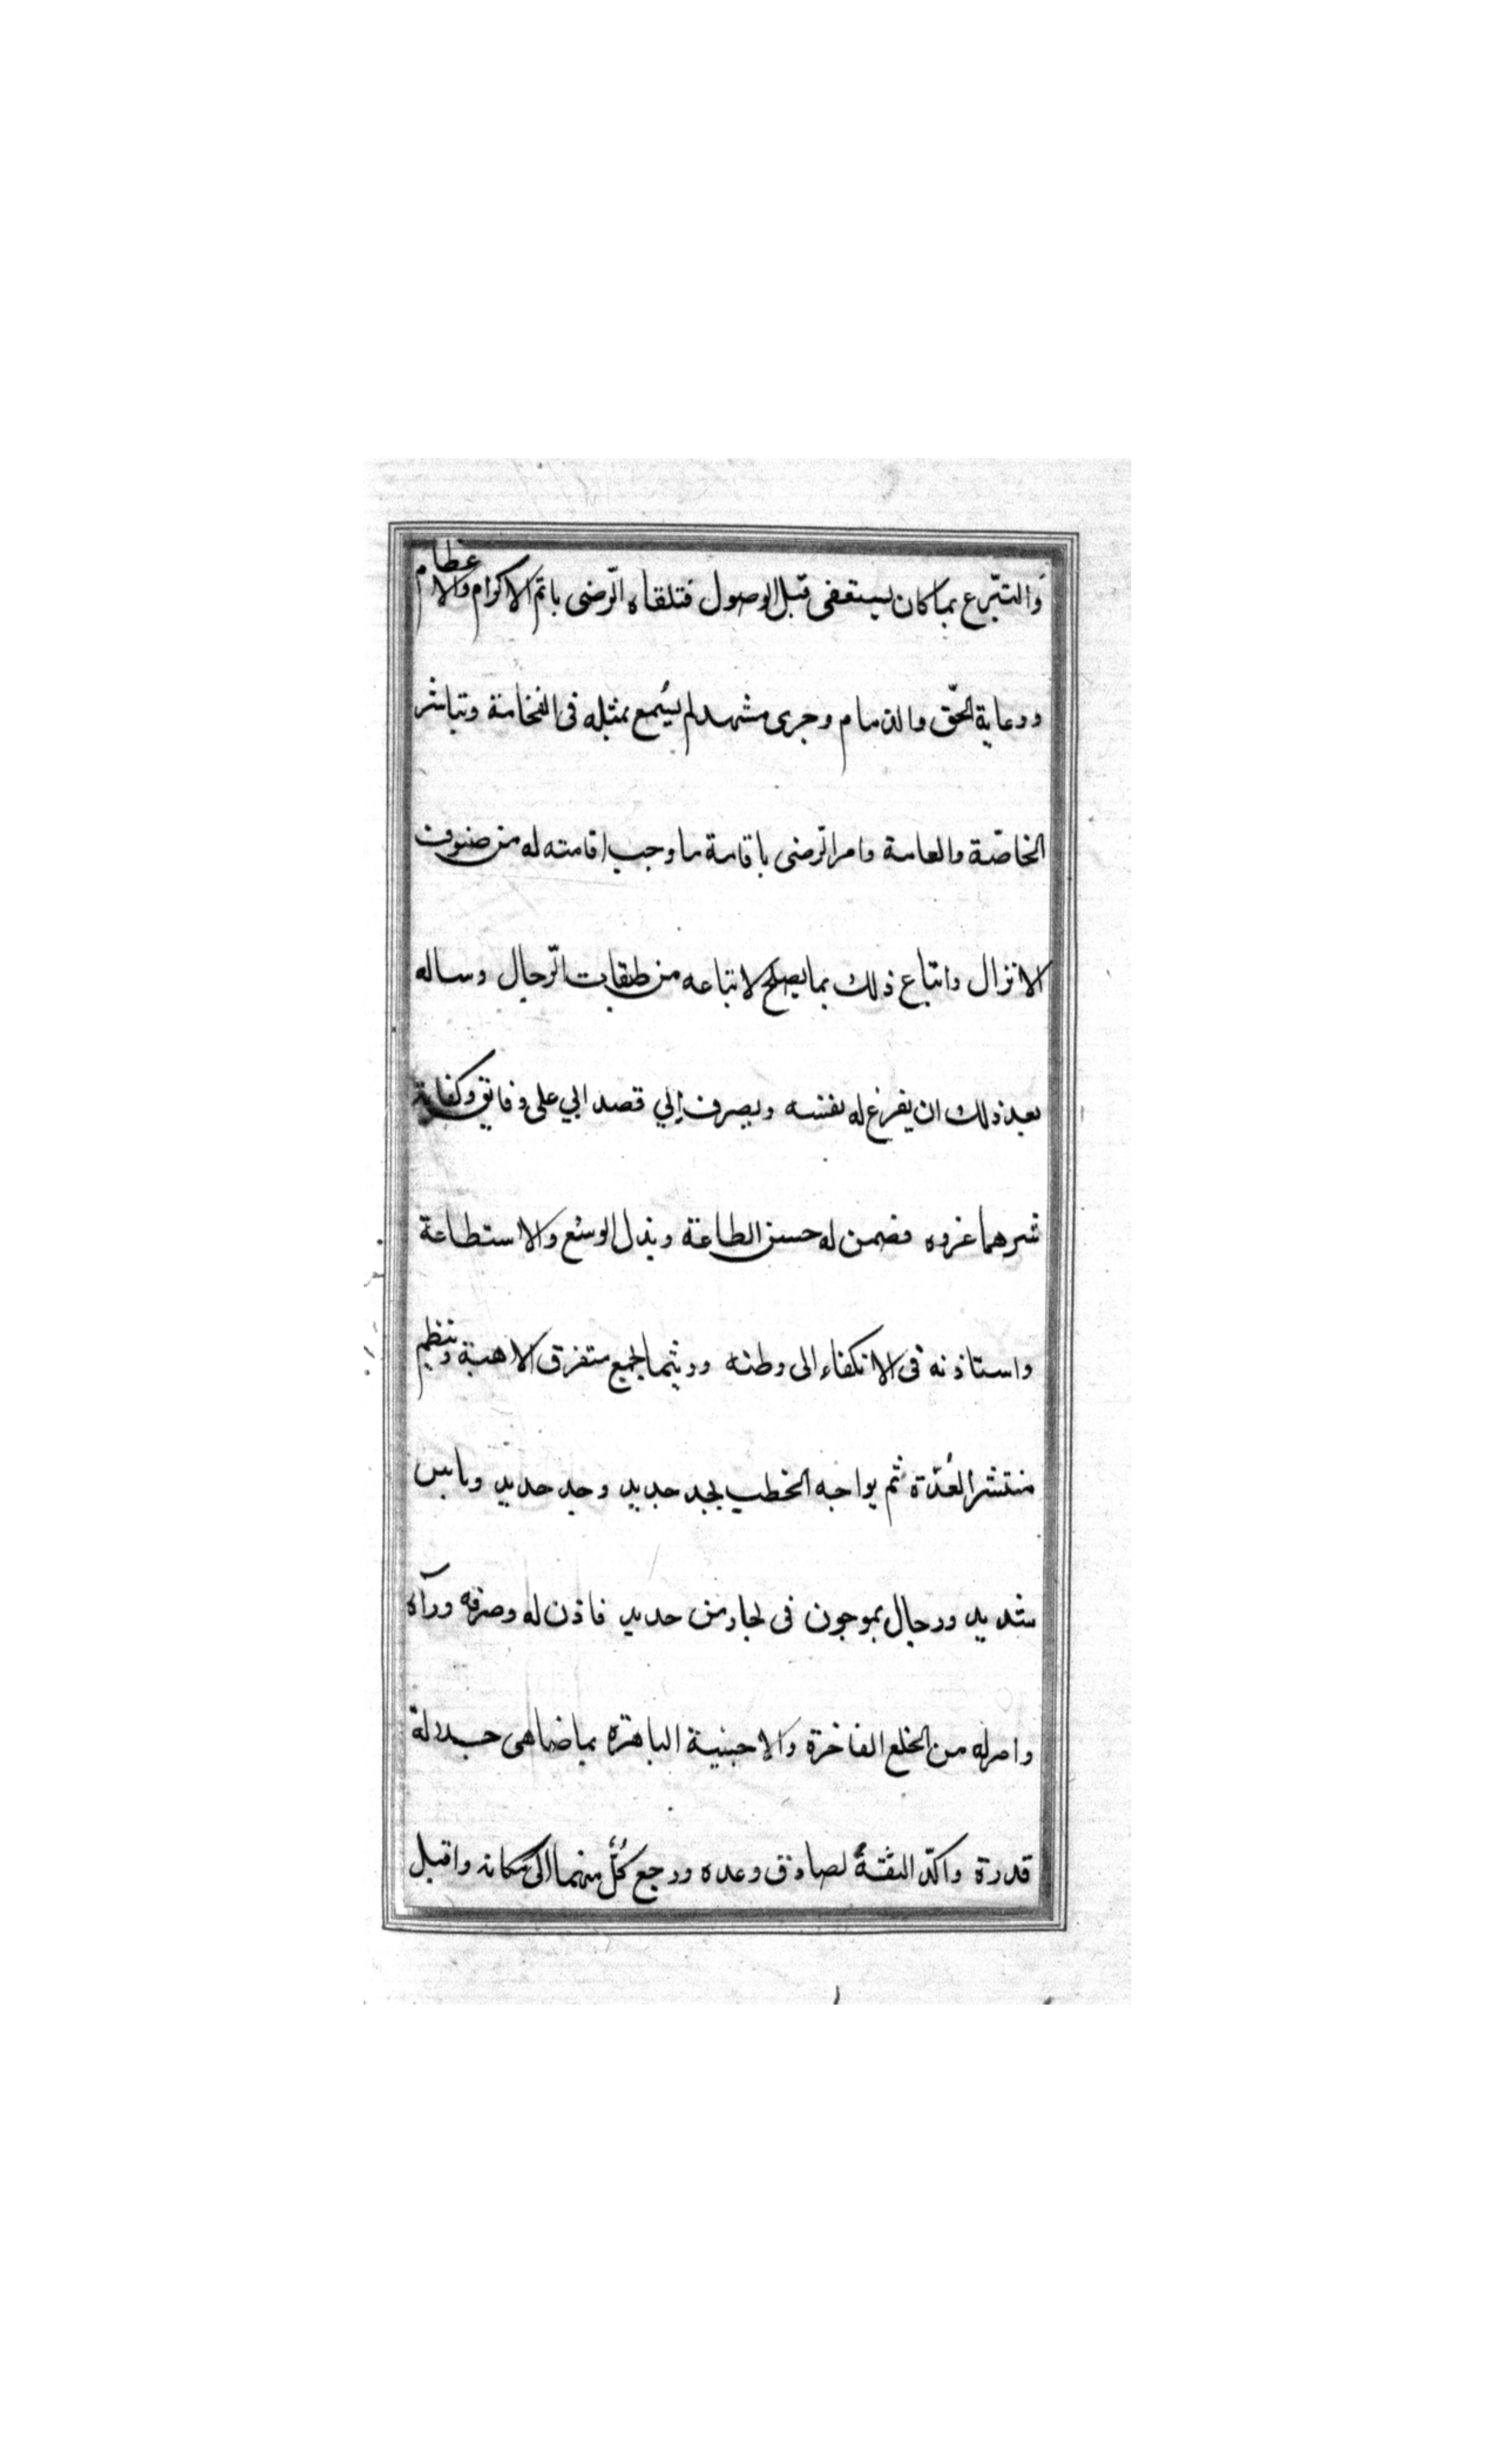 والتبّرع بما كان يستعفى قبل الوصول فتلقاه الرّضى باتم الاكرام والاعظام
ورعاية الحّق والذمام وجرى مشهد لم يسُمع بمثله فى الفخامة وتباشر
الخاصّة والعامة وامر الرّضى باقامة ما وجب اقامته له من صنوف
الانزال واتباع ذلك بما يصلح لاتباعه من طبقات الرّجال وساله
بعد ذلك ان يفرغ له نفسه ويصرف إلي قصد ابي على وفايق وكفاية
شرهما غروه فضمن له حسن الطاعة وبذل الوسُع والاستطاعة
واستاذنه فى الانكفاء الى وطنه وريثما يجمع متفرق الاهبة وينظم
منتشر العُدّة ثم يواجه الخطب بجد جديد وحد حديد وباس
شديد ورجال يموجون فى بحار من حديد فاذن له وصرفه ورآه
وامر له من الخلع الفاخرة والاحبية الباهرة بما ضاهى جلالة
قدرة واكدّ الثقةُ لصادق وعده ورجع كُلٌّ منهما الى مكانه واقبل